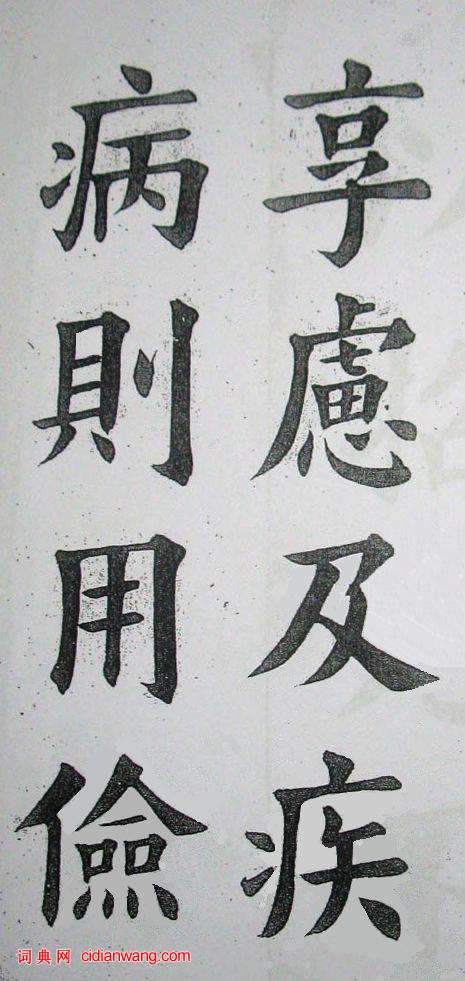 享慮及疾
病則用儉
词典网 cidianwang.com